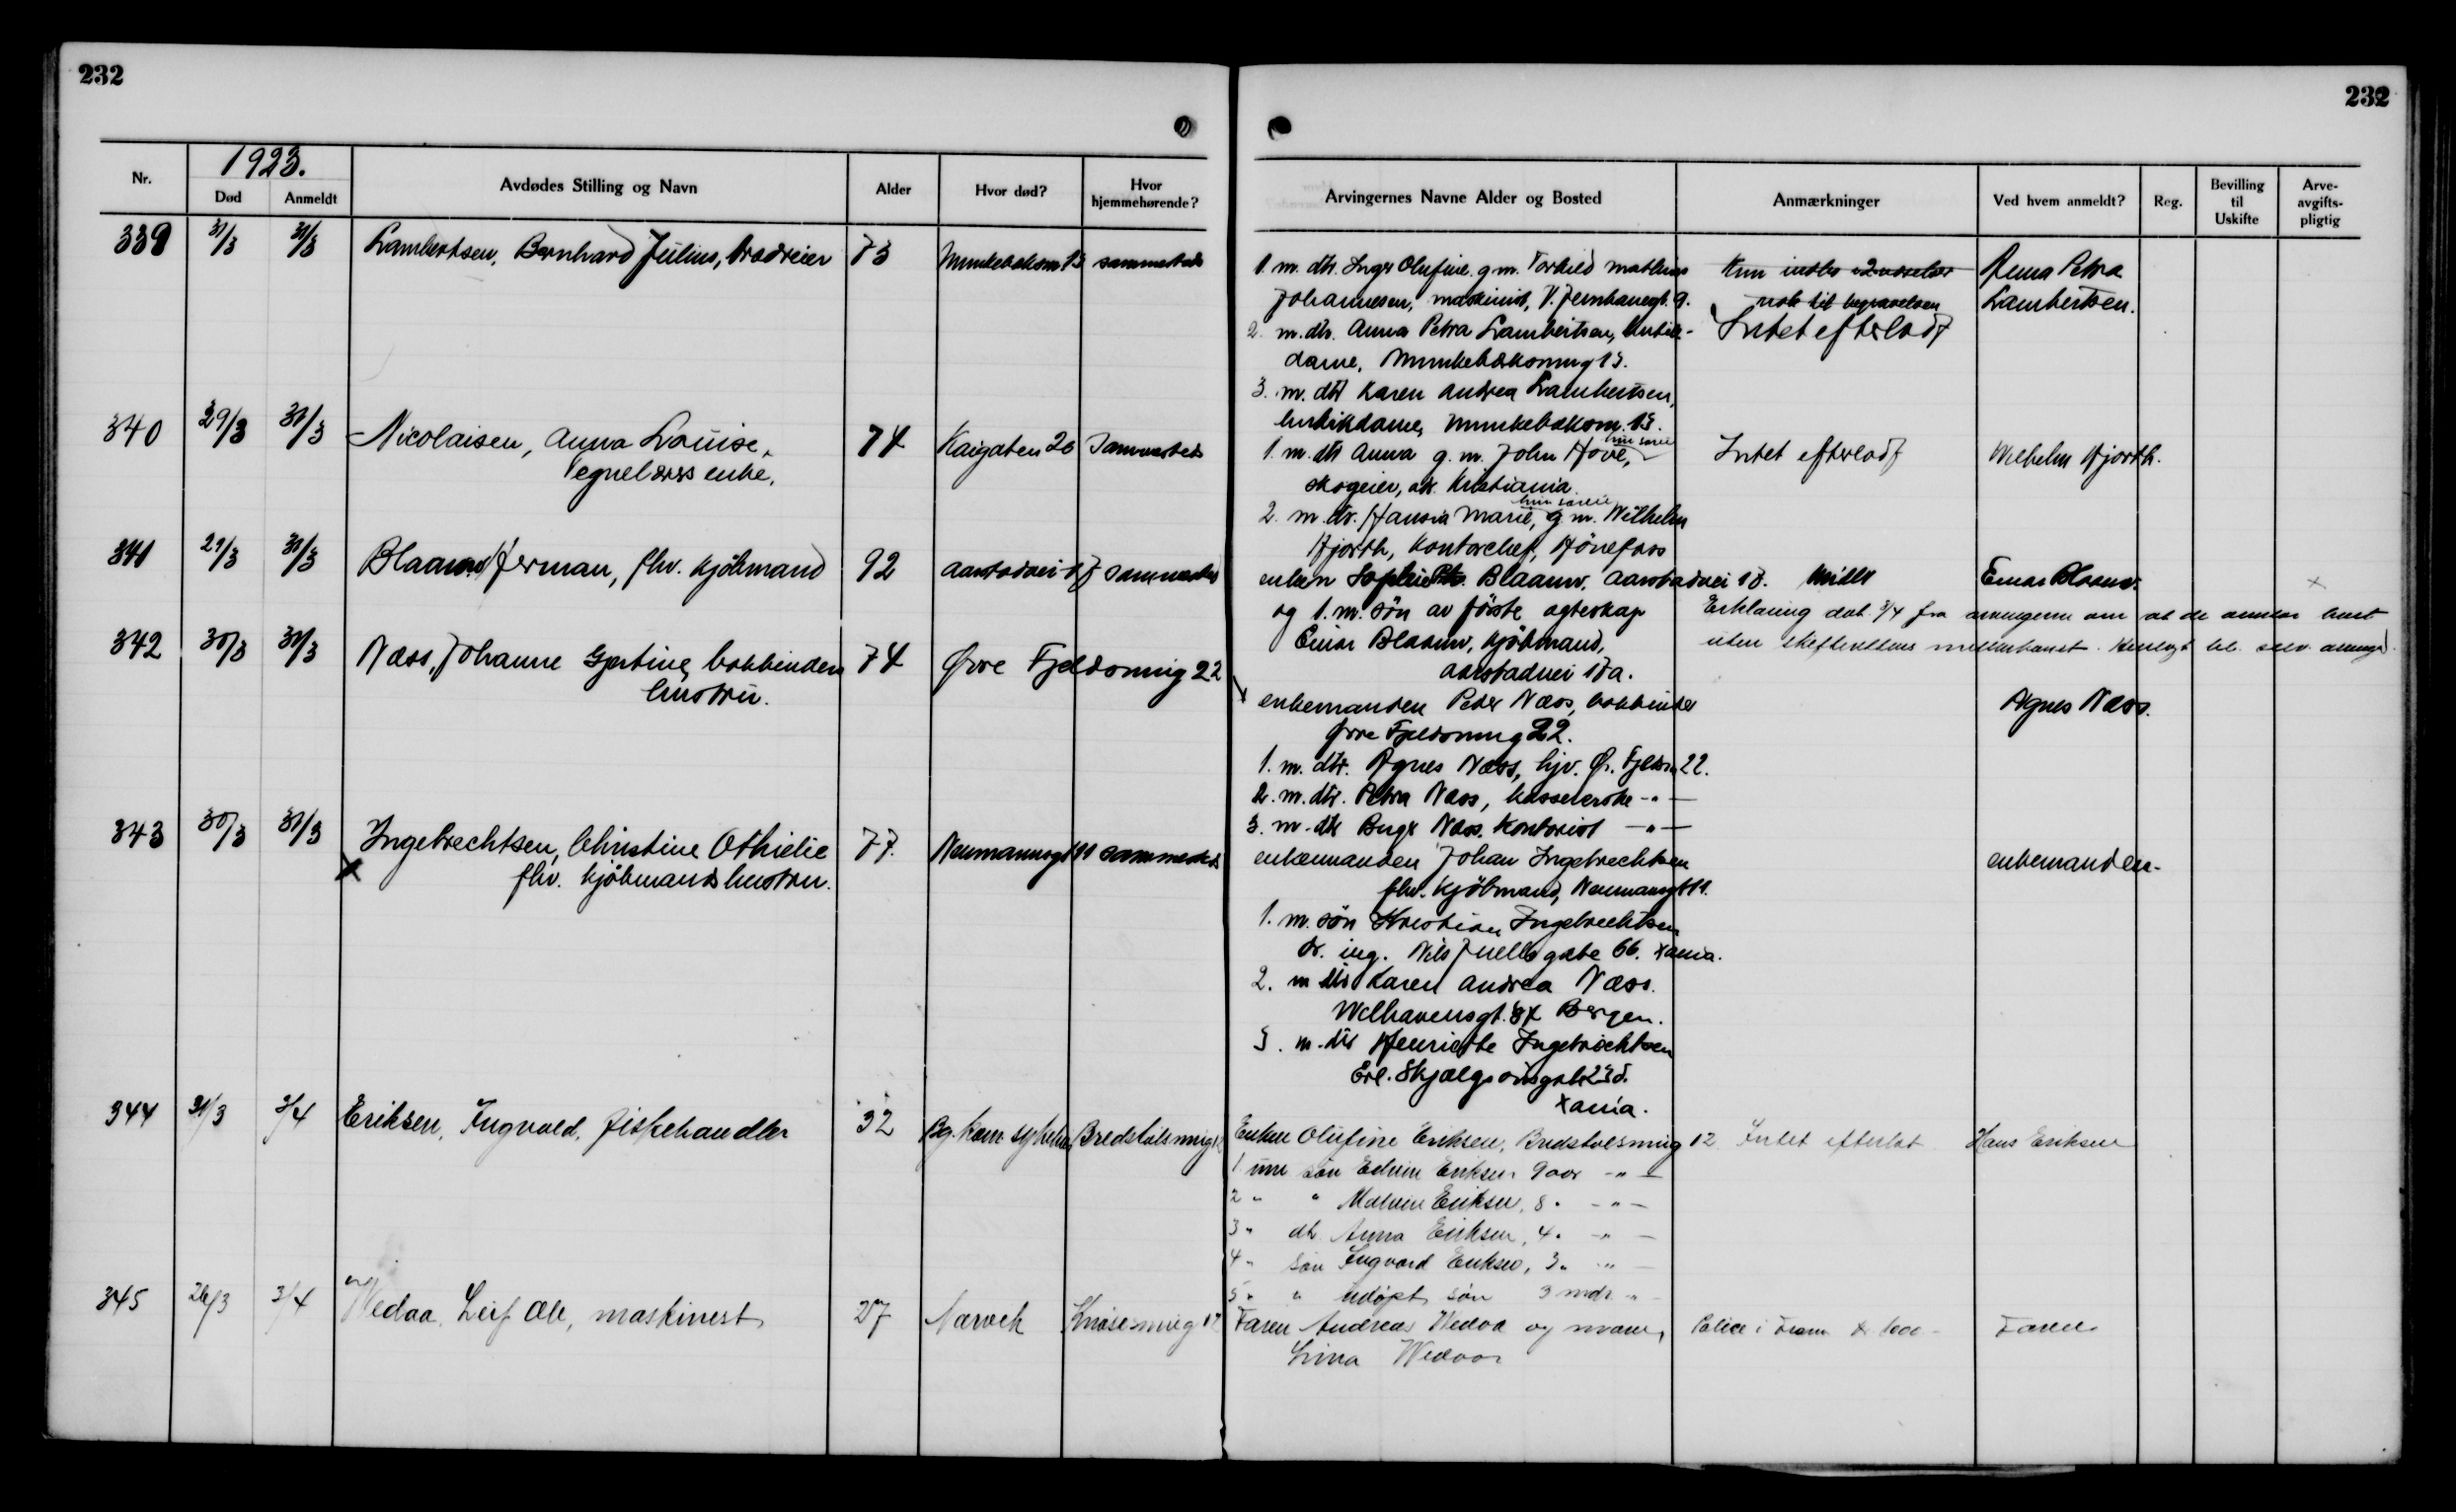 232
232
1923.
Nr.
Død
Anmeldt
Avdødes Stilling og Navn
Alder
Hvor død?
Hvor hjemmehørende?
Arvingernes Navne Alder og Bosted
Anmærkninger
Ved hvem anmeldt?
Reg.
Bevilling til Uskifte
Arve-avgifts-pligtig
339 31/3 31/3 Lambertsen, Bernhard Julius, 73 sammesteds
1. m. dtr. Inger Olufine g. m. Torkild Mathias
Johannesen, maskinist, V. Jernbanegt. 9.
2. m. dtr. Anna Petra Lambertsen, butik-
dame, Munkebæksmug 13.
3. m. dtr Karen Andrea Lambertsen,
butikdame, Munkebæksm. 13.
nok til begravelsen
Intet efterladt
Anna Petra
Lambertsen.
340 29/3 31/3 Nicolaisen, Anna Louise, 74 Kaigaten 26 Sammesteds
enke.
1. m. dtr Anna g. m. John Hove,
skogeier, adr. Kristiania.
2. m. dtr. Hansia Marie, g. m. Wilhelm
Hjorth, Kontorchef, Hönefoss
Intet efterladt
Wilhelm Hjorth.
341 29/3 31/3 Blaauw, Herman, fhv. kjöbmand 92 Aarstadvei 17 sammesteds
enken Sophie Blaauw. Aarstadvei 17.
og 1. m. sön av förste egteskap
Einar Blaauw, kjöbmand,
Aarstadvei 17a.
Erklæring dat. 3/4 fra arvingerne om at de ønsker
uten skifterettens mellemkomst.
Einar Blaauw.
x
342 30/3 31/3 Næss, Johanne Gjertine, bokbinders 74 Øvre Fjeldsmug 22
hustru.
enkemanden Peder Næss, bokbinder
Øvre Fjeldsmug 22.
1. m. dtr. Agnes Næss, hjv. Ø. Fjeldsm 22.
2. m. dtr. Petra Næss, kassererske - " -
3. m. dtr Næss. Kontorist - " -
Agnes Næss.
343 30/3 31/3 Ingebrechtsen, Christine Othielie 77. Neumannsgt 11 sammesteds
x fhv. kjöbmands hustru.
enkemanden Johan Ingebrechtsen
fhv. kjöbmand, Neumannsgt 11.
1. m. sön Kristian Ingebrechtsen
dr. ing. Nils Juells gate 66. Xania.
2. m dtr Karen Andrea Næss.
Welhavensgt. Bergen.
3. m. dtr Henriette Ingebrechtsen
Erl. Skjalgsonsgate 23d.
Xania.
enkemanden.
344 31/3 3/4 Eriksen, Ingvald, fiskehandler 32 Bg. Kom sykehus Bredstulsmug 12
Enken Olufine Eriksen, Bredstulsmug 12
1 um sön Edvin Eriksen 9 aar - " -
2 " " Malvin Eriksen, 8 " - " -
3 " dtr Anna Eriksen, 4 " - " -
4 " sön Ingvard Eriksen, 3 " - " -
5 " " udöpt sön 3 mdr. "
Intet efterlat
Hans Eriksen
345 26/3 3/4 Wedaa, Leif Ole, maskinist 27 Narvik Knösesmug 12
Faren Andreas Wedaa og moren,
Lina Wedaa
Police i Fram kr 1000 -
Faren